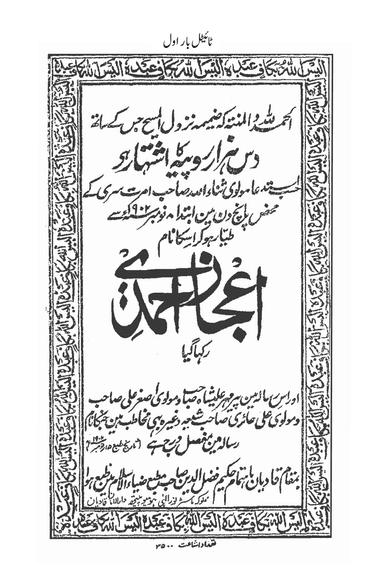 ٹائیٹل بار اول
الیس اللہ بکاف عبدہ الیس اللہ بکاف عبدہ الیس اللہ بکاف عبدہ
الحمد للہ والمنتہ کہ ضمیمہ نزول المسیح جس کے ساتھ
دس ہزار روپیہ کا اشتہار ہو
مولوی ثناء اللہ صاحب امرت سری کے
محض پانچ دن مین ابتداء نومبر ۱۹۰۲ء سے
طیار ہو کر اسکا نام
اعجاز احمدی
رکھا گیا
اور اس رسالہ مین پیر مہر علیشاہ صاحب و مولوی اصغر علی صاحب
و مولوی علی حائری صاحب شیعہ وغیرہ بھی مخاطب ہین جنکا نام
رسالہ مین مفصل درج ہے
بمقام قادیان باہتمام حکیم فضل الدین صاحب مطبع ضیاء الاسلام مین طبع ہوا
دارالامان قادیان
الیس اللہ بکاف عبدہ الیس اللہ بکاف عبدہ الیس اللہ بکاف عبدہ
تعداد اشاعت ۳۵۰۰